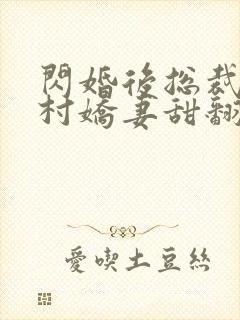 閃婚後總裁
村嬌妻甜翻
愛喫土豆絲